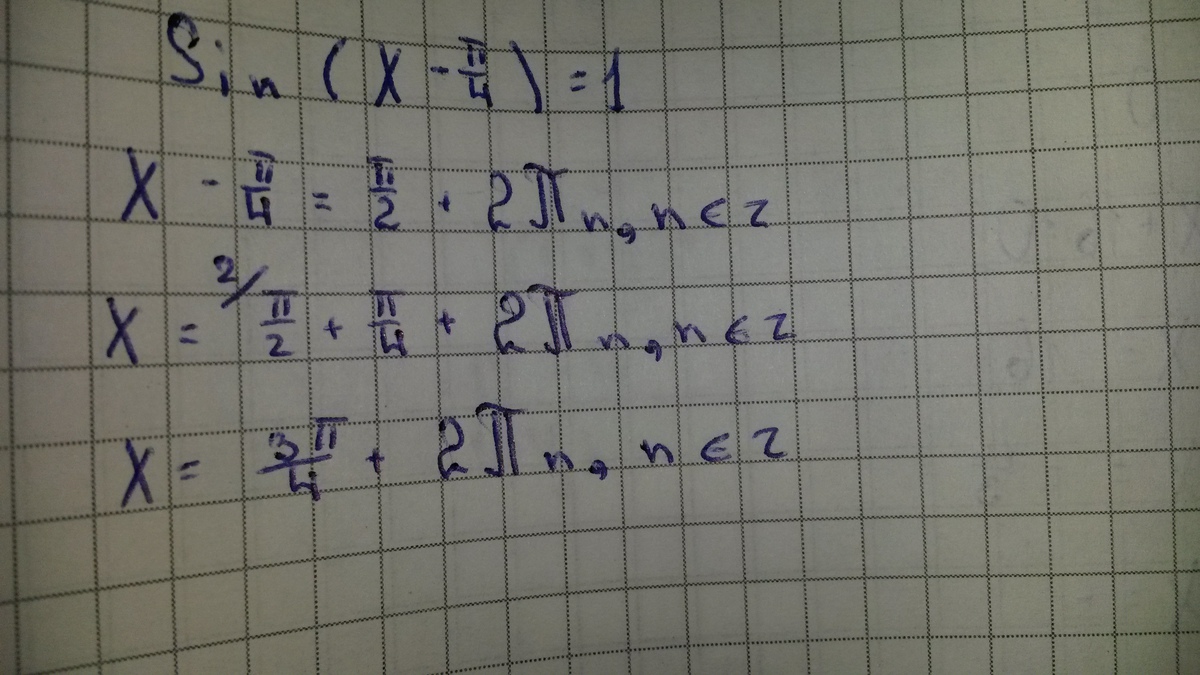 Sin (x - π/4) = 1
x - π/4 = π/2 + 2πn, n ∈ z
x = ²/ π/2 + π/4 + 2πn, n ∈ z
x = 3π/4 + 2πn, n ∈ z